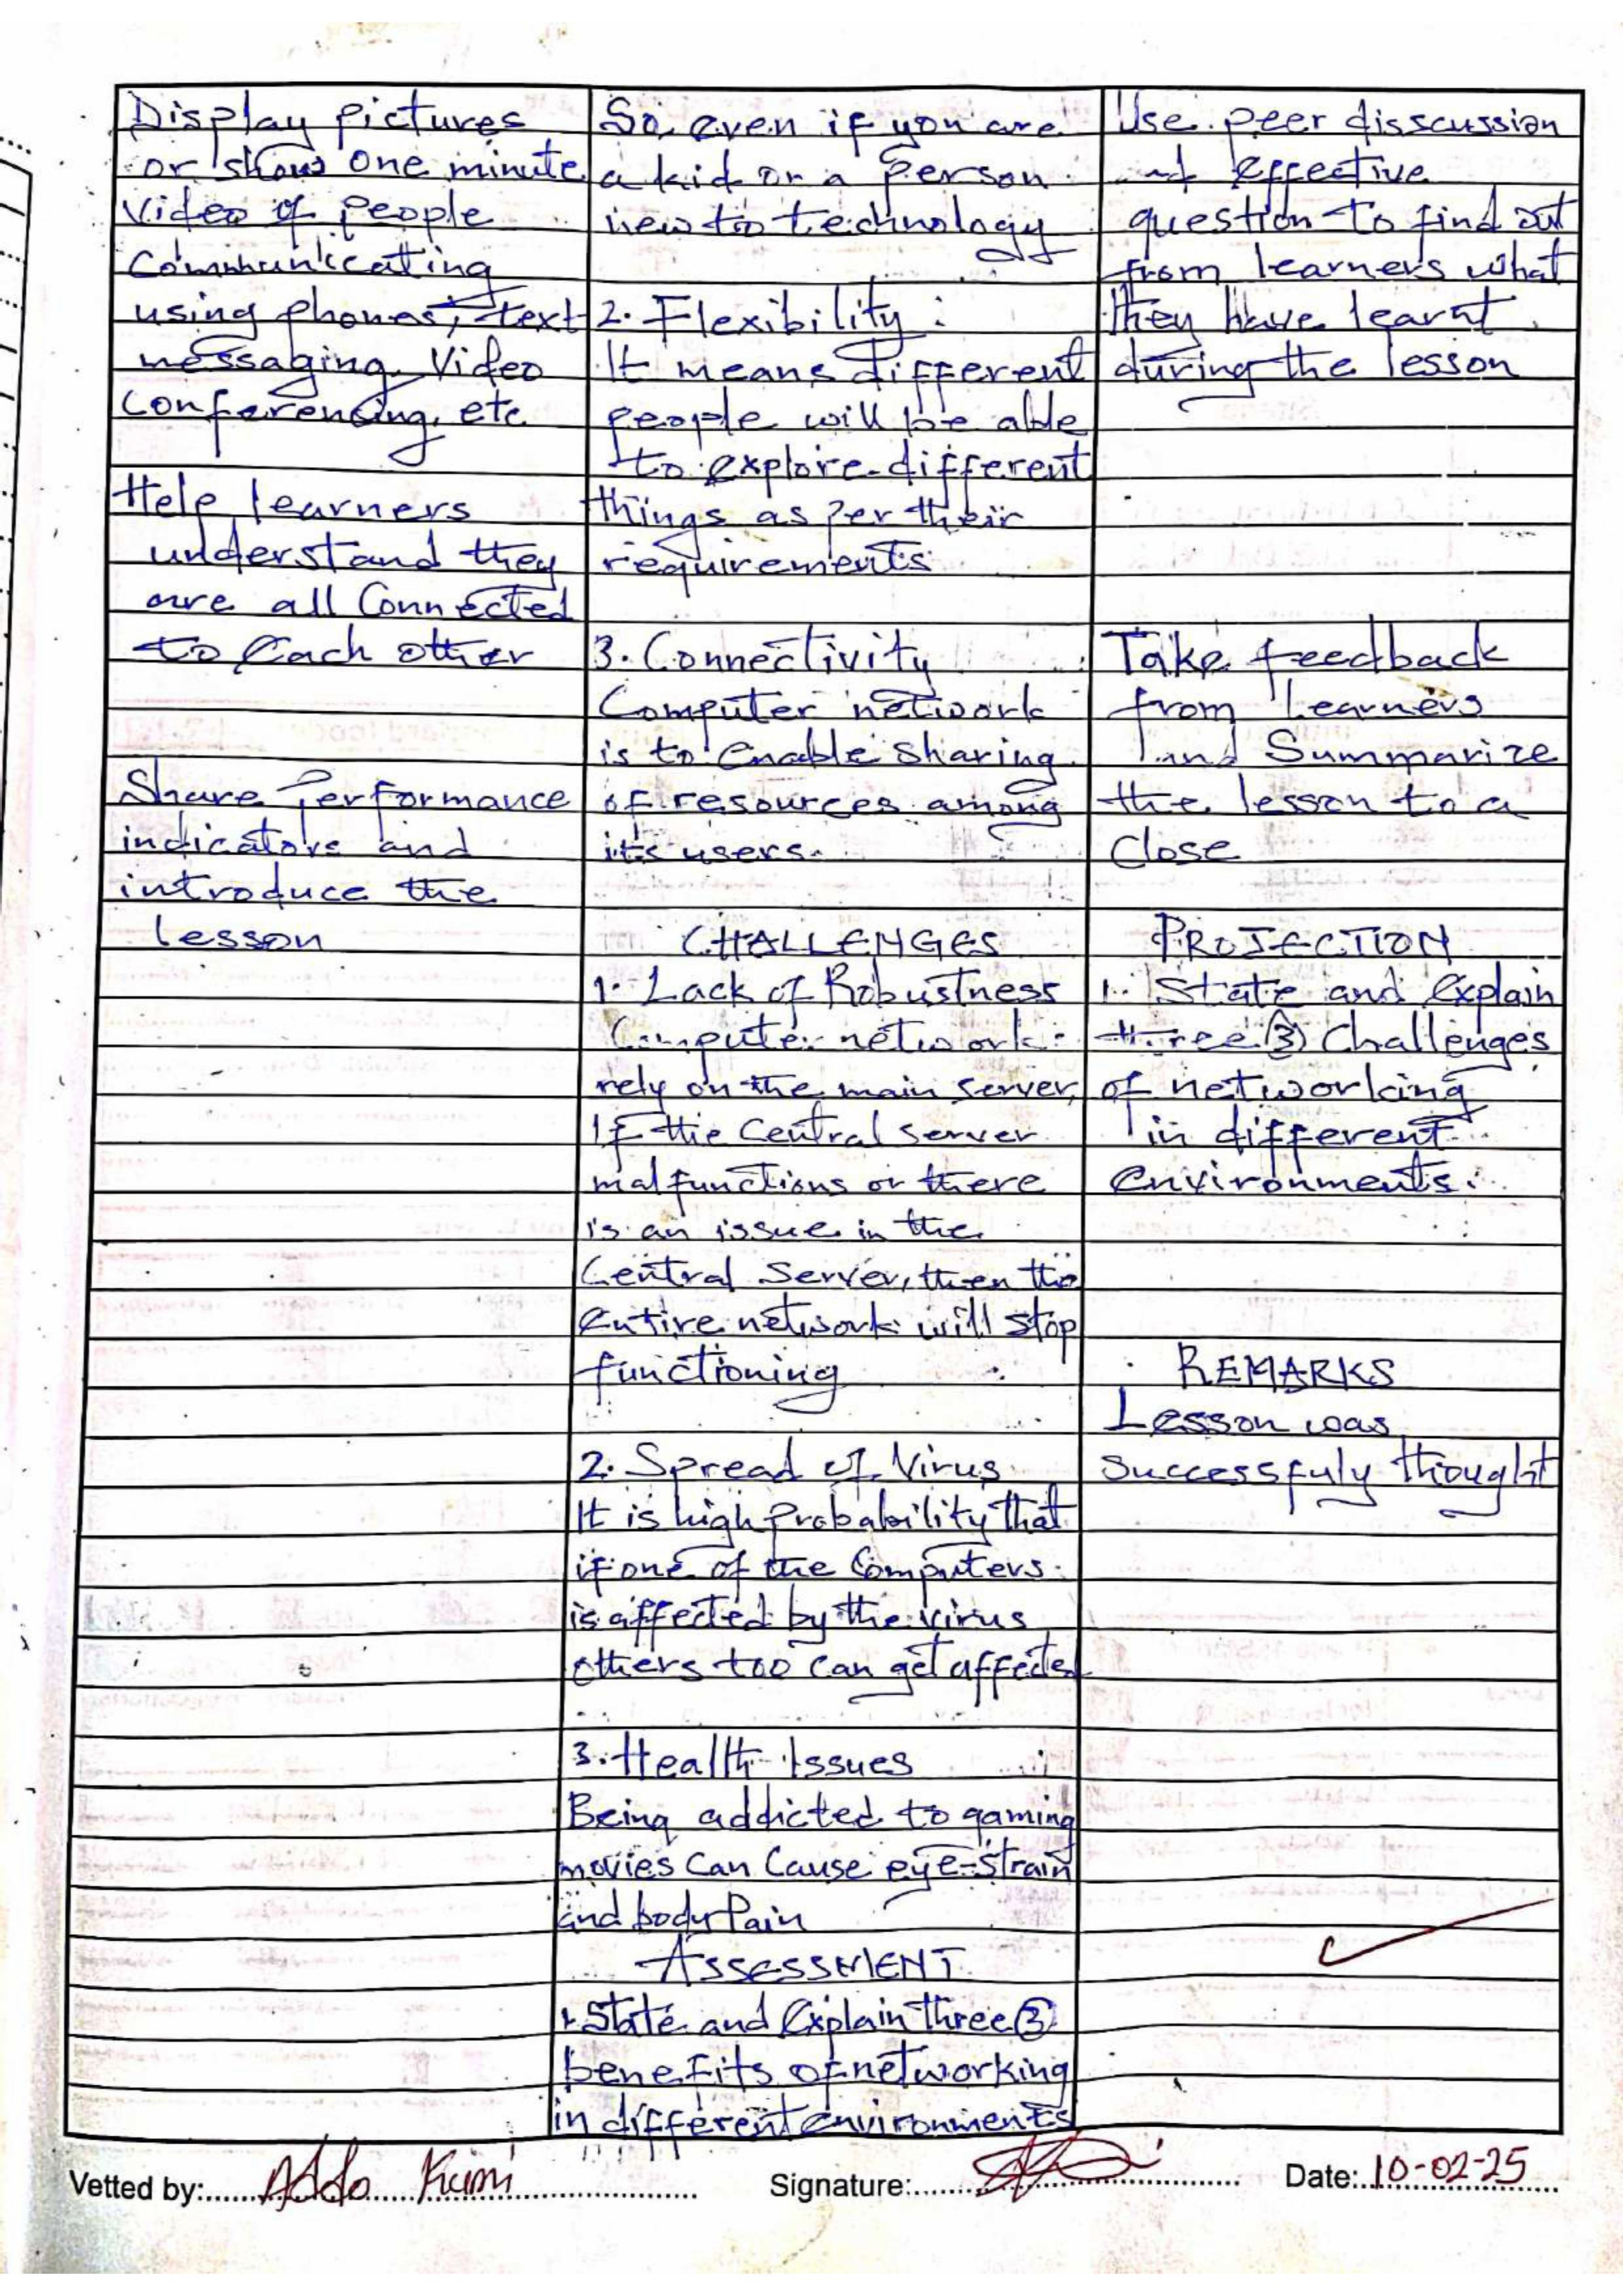 Display pictures
or show one minute
Video of people
Communicating
using phones, text
messaging, Video
Conferencing, etc
Help learners
understand they
are all Connected
to Each other
Share Performance
indicators and
introduce the
lesson
So, even if you are
a kid or a person
new to technology
2. Flexibility:
It means different
people will be able
to explore different
things as per their
requirements
3. Connectivity
Computer network
is to Enable sharing
of resources among
its users.
CHALLENGES
1. Lack of Robustness
Computer network
rely on the main server,
If the Central server
malfunctions or there
is an issue in the
Central Server, then the
Entire network will stop
functioning
2. Spread of Virus
It is high Probability that
if one of the Computers
is affected by the virus
others too can get affected
3. Health Issues
Being addicted to gaming
movies Can Cause eye-strain
and body Pain
ASSESSMENT
1. State and Explain three (3)
benefits of networking
in different environments
Use peer disscussion
and effective
question to find out
from learners what
they have learnt
during the lesson
Take feedback
from learners
and Summarize
the lesson to a
Close
PROJECTION
1. State and Explain
three (3) Challenges
of networking
in different
Environments.
REMARKS
Lesson was
Successfuly thought
Vetted by: Addo Signature: Date: 10-02-25